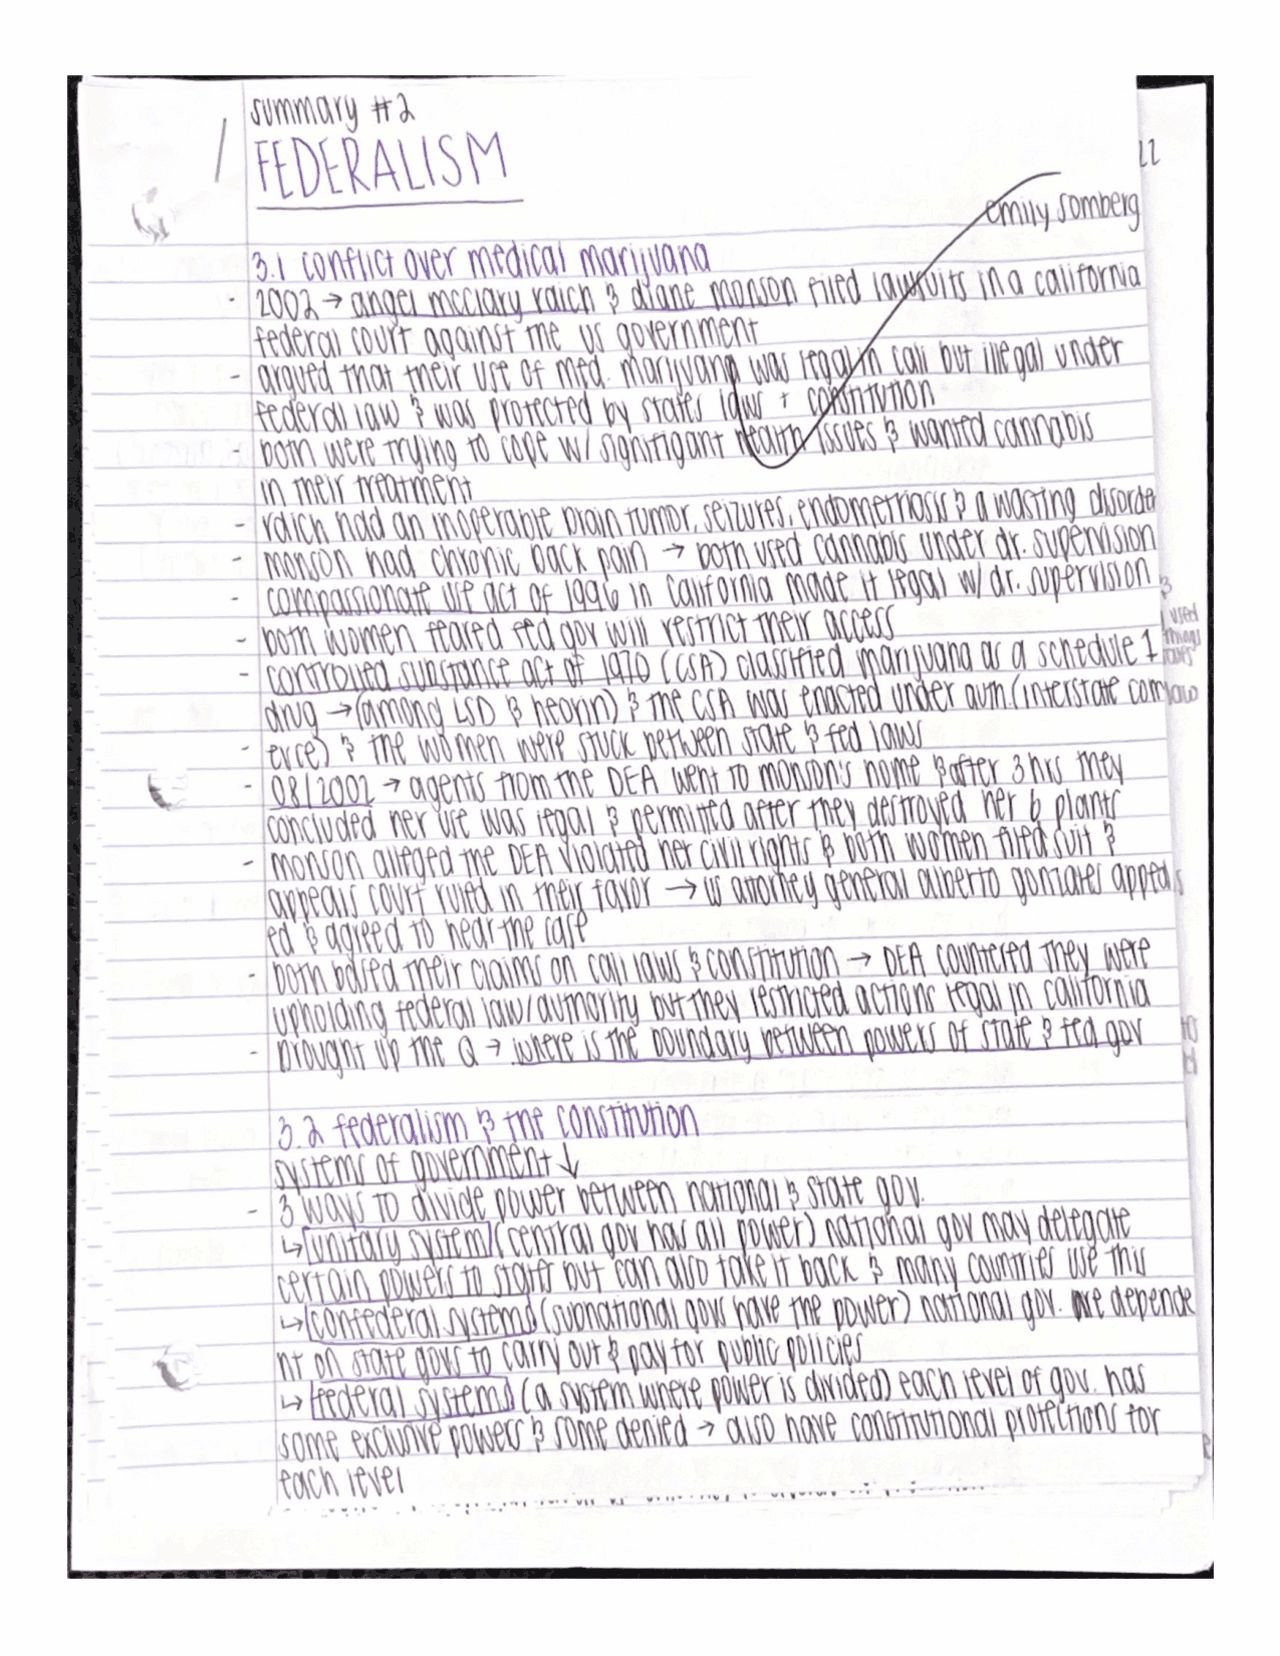 summary #2
FEDERALISM
22
emily somberg
3.1 conflict over medical marijuana
- 2002 → angel mcclary raich & diane monson filed lawsuits in a california
federal court against the us government
- argued that their use of med. marijuana was legal in cali but illegal under
federal law & was protected by states laws + constitution
- both were trying to cope w/ signifigant health issues & wanted cannabis
in their treatment
- raich had an inoperable brain tumor, seizures, endometriosis & a wasting disorder
- monson had chronic back pain → both used cannabis under dr. supervision
- compassionate use act of 1996 in California made it legal w/ dr. supervision
- both women feared fed gov will restrict their access
- controlled substance act of 1970 (CSA) classified marijuana as a schedule 1
drug → (among LSD & heorin) & the CSA was enacted under auth. (interstate comm
- erce) & the women were stuck between state & fed laws
- 08/2002 → agents from the DEA went to monson's home & after 3 hrs they
concluded her use was legal & permitted after they destroyed her 6 plants
- monson alleged the DEA violated her civil rights & both women filed suit &
appeals court ruled in their favor → us attorney general alberto gonzales appeal
ed & agreed to hear the case
- both based their claims on cali laws & constitution → DEA countered they were
upholding federal law/authority but they restricted actions legal in california
- brought up the Q → where is the boundary between powers of state & fed gov
3.2 federalism & the constitution
systems of government ↓
- 3 ways to divide power between national & state gov.
↳ unitary system (central gov has all power) national gov may delegate
certain powers to states but can also take it back & many countries use this
↳ confederal systems (subnational govs have the power) national gov. are depende
nt on state govs to carry out & pay for public policies
↳ federal systems (a system where power is divided) each level of gov. has
some exclusive powers & some denied → also have constitutional protections for
each level